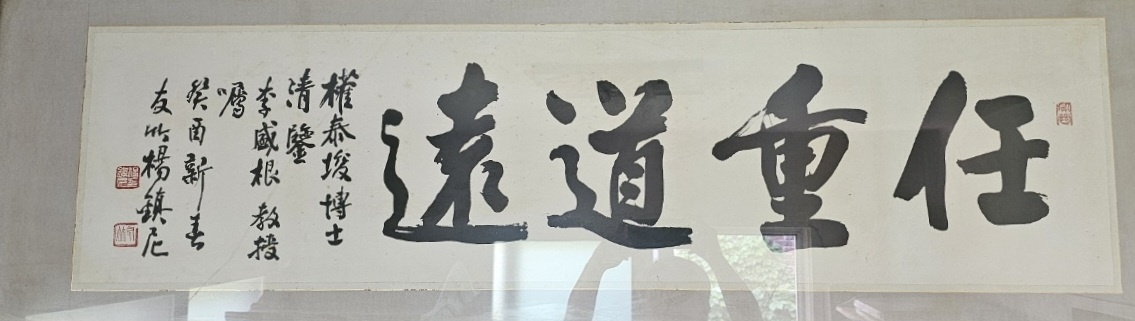 任重道遠
權泰埈博士
清鑒
李盛根教授
囑
癸酉新春
友竹楊鎮尼